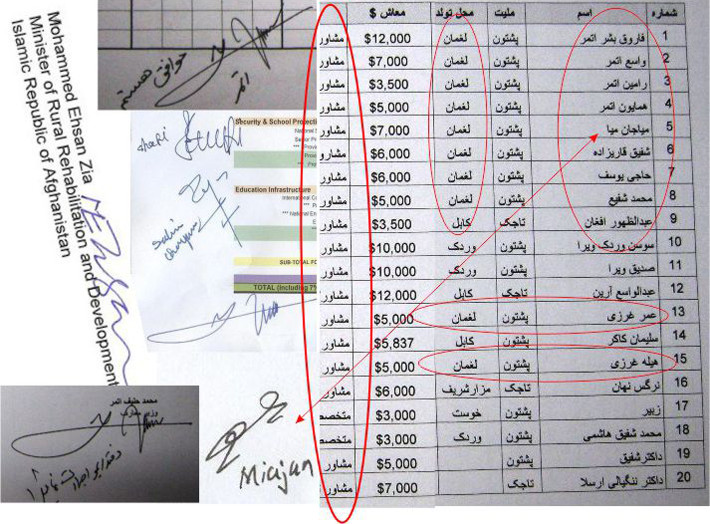 Mohammed Ehsan Zia
Minister of Rural Rehabilitation and Development
Islamic Republic of Afghanistan
خوافی هستم
اتمر
shafi
Security & School Protecti
Education Infrastructure
SUB-TOTAL FO
TOTAL (Including 7%
محمد حنیف اتمر
Miajan
شماره اسم ملیت محل تولد معاش $
1 فاروق بشر اتمر پشتون لغمان $12,000 مشاور
2 واسع اتمر پشتون لغمان $7,000 مشاور
3 رامین اتمر پشتون لغمان $3,500 مشاور
4 همایون اتمر پشتون لغمان $5,000 مشاور
5 میاجان میا پشتون لغمان $7,000 مشاور
6 شفیق قاریزاده پشتون لغمان $6,000 مشاور
7 حاجی یوسف پشتون لغمان $6,000 مشاور
8 محمد شفیع پشتون لغمان $5,000 مشاور
9 عبدالظهور افغان تاجک کابل $3,500 مشاور
10 سوسن وردک ویرا پشتون وردک $10,000 مشاور
11 صدیق ویرا پشتون وردک $10,000 مشاور
12 عبدالواسع آرین تاجک کابل $12,000 مشاور
13 عمر غرزی پشتون لغمان $5,000 مشاور
14 سلیمان کاکر پشتون کابل $5,837 مشاور
15 هیله غرزی پشتون لغمان $5,000 مشاور
16 نرگس نهان تاجک مزارشریف $6,000 مشاور
17 زبیر پشتون خوست $3,000 متخصص
18 محمد شفیق هاشمی پشتون وردک $3,000 متخصص
19 داکترشفیق پشتون $5,000 مشاور
20 داکتر ننگیالی ارسلا تاجک $7,000 مشاور